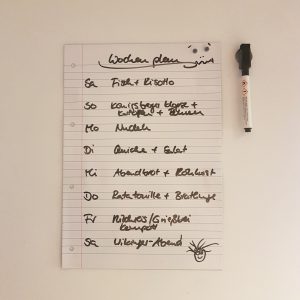 Wochenplan
Sa Fisch + Risotto
So Königsberger Klopse +
Kartoffeln + Bohnen
Mo Nudeln
Di Quiche + Salat
Mi Abendbrot + Rohkost
Do Ratatouille + Bratlinge
Fr Milchreis/Grießbrei
Kompott
Sa Wikinger-Abend